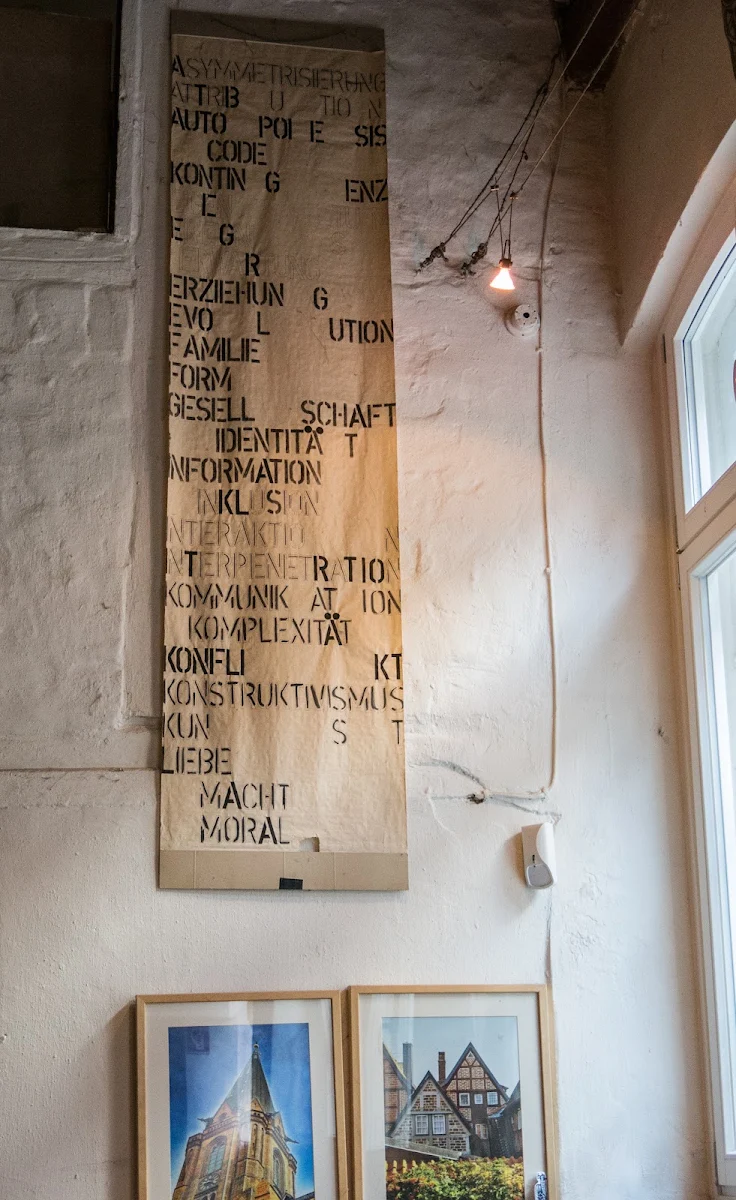 ASYMMETRISIERUNG
ATTRIB U TION
AUTO POI E SIS
CODE
KONTIN G ENZ
E
E G
R
ERZIEHUN G
EVO L UTION
FAMILIE
FORM
GESELL SCHAFT
IDENTITÄ T
INFORMATION
INKLUSION
INTERAKTIO N
INTERPENETRATION
KOMMUNIK AT ION
KOMPLEXITÄT
KONFLI KT
KONSTRUKTIVISMUS
KUN S T
LIEBE
MACHT
MORAL